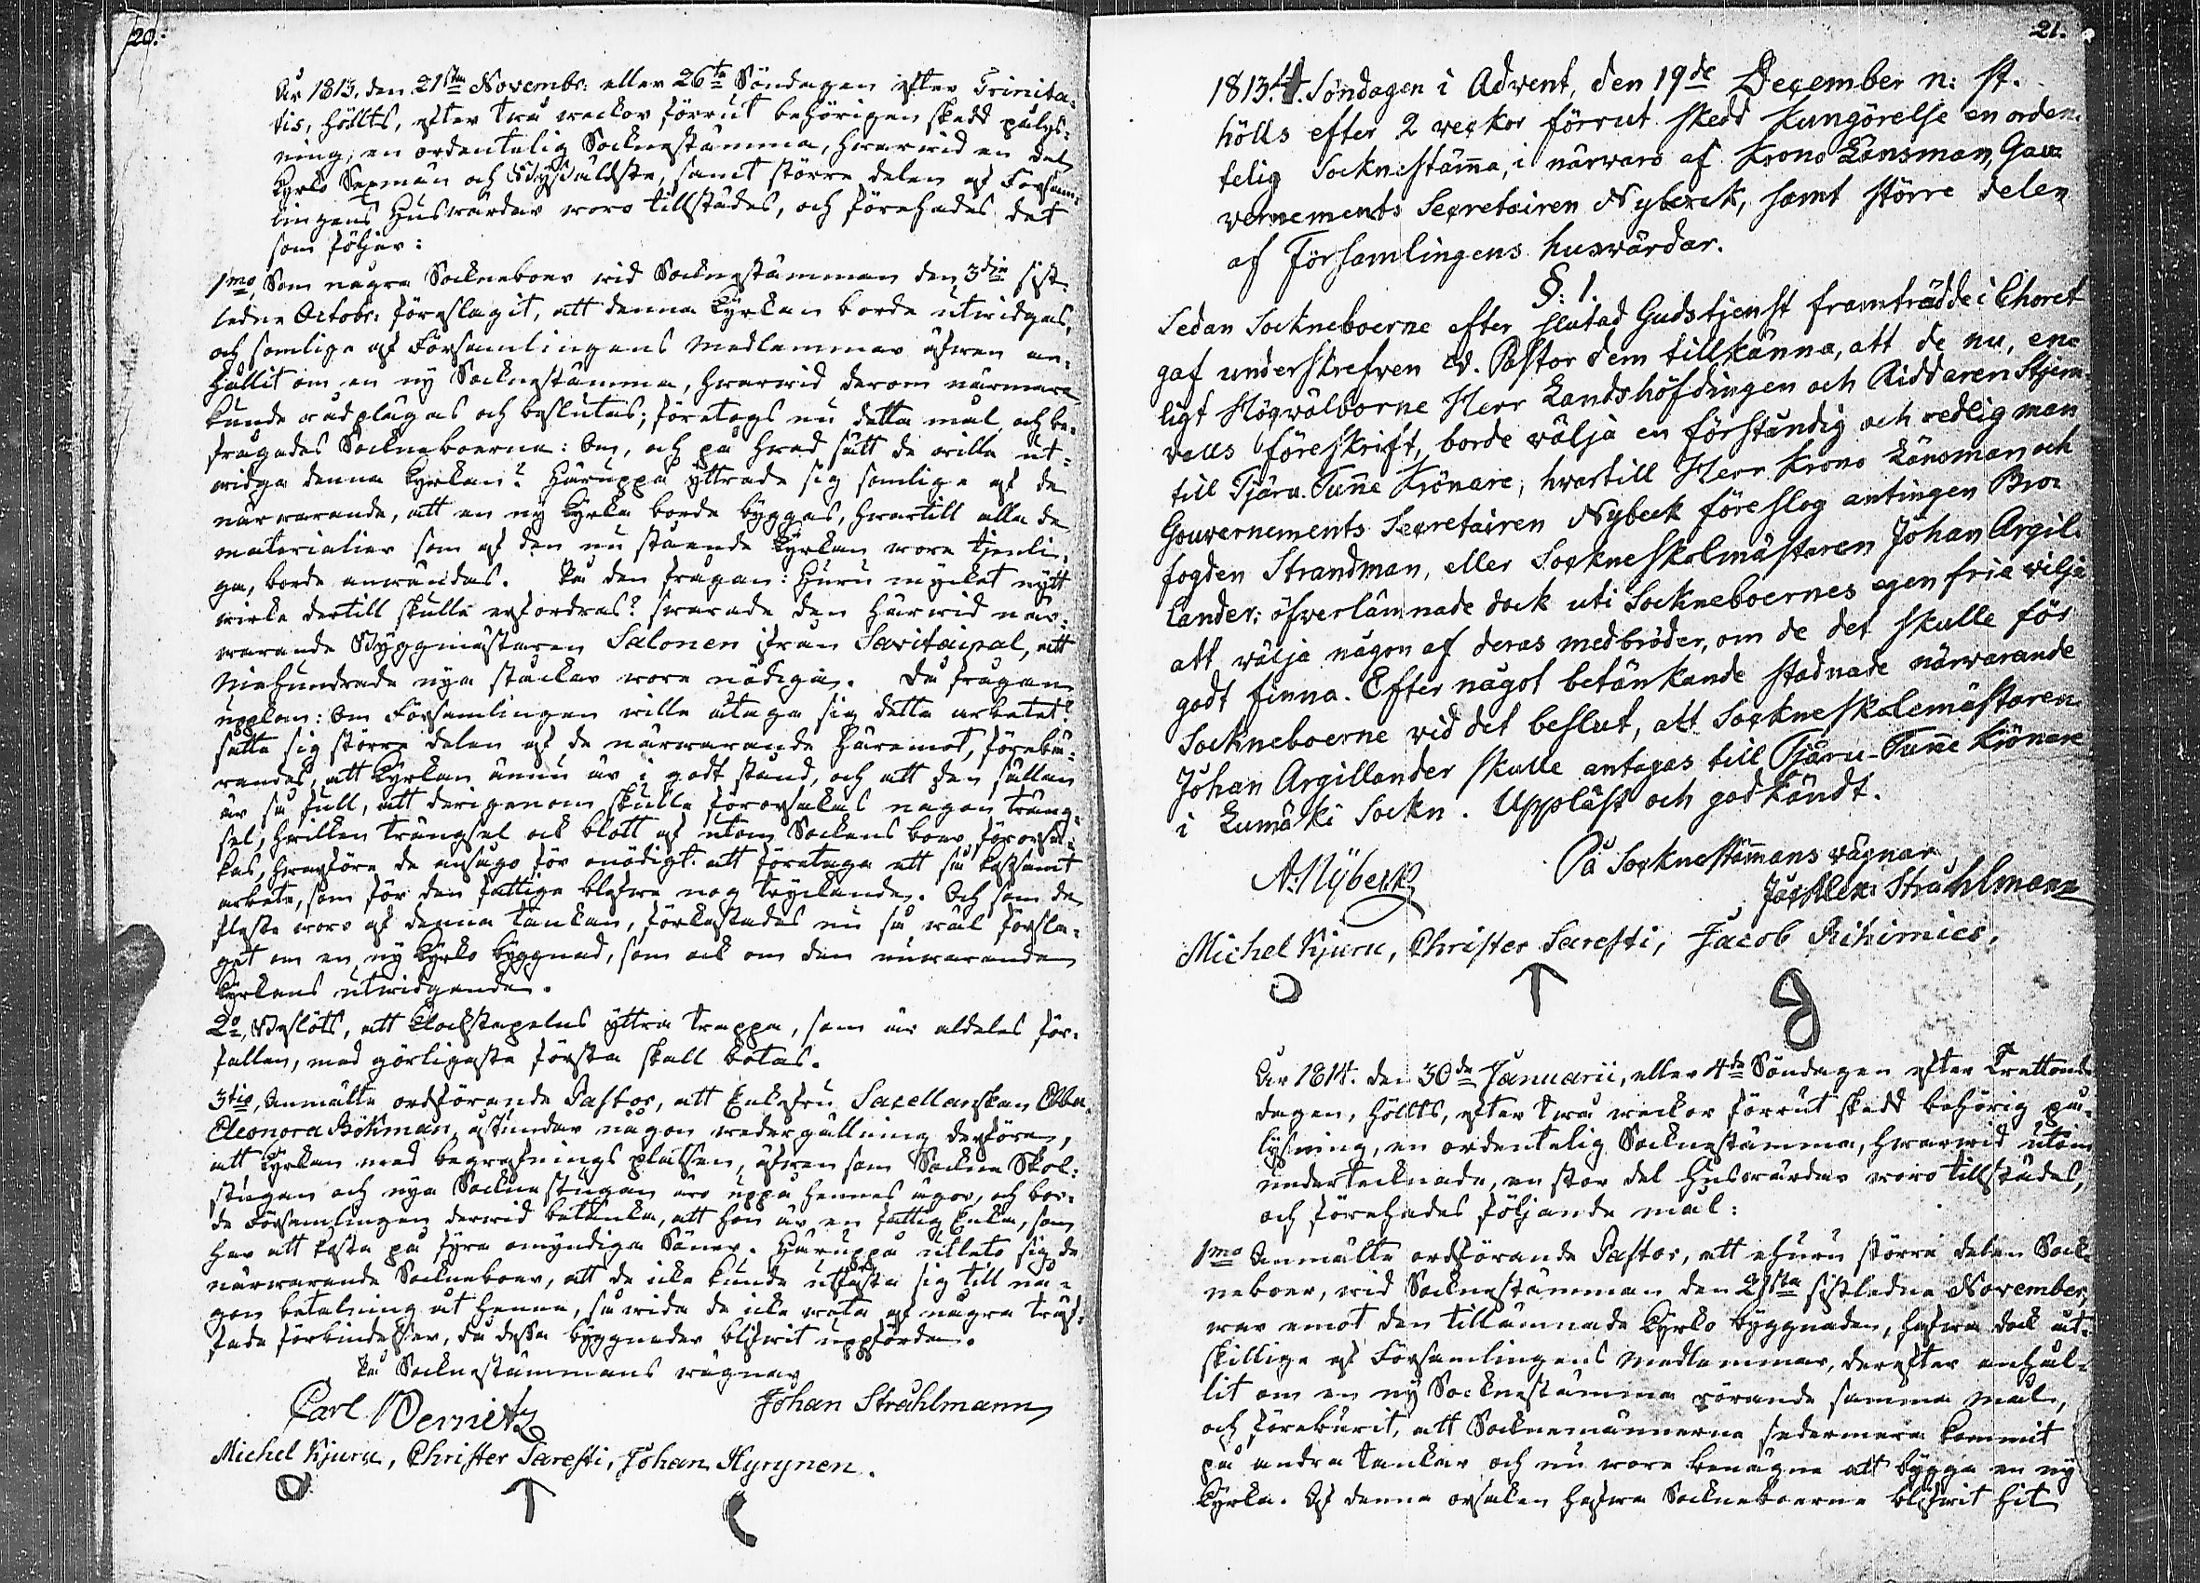 20.
År 1813. den 21sta Novembr: eller 26te Söndagen efter Trinita-
tis, höllts, efter twå weckor förrut behörigen skedd pålys-
ning, en ordentelig Socknestämma, hwarwid en del
Kyrko Sexmän och Bys äldste, samt större delen af Försam-
lingens Huswärdar woro tillstädes, och förehades det
som följer:
1mo, Som några Sockneboer wid Socknestämman den 3die sist-
ledne Octobr: föreslagit, att denna Kyrkan borde utwidgas,
och somlige af Församlingens medlemmar äfwen an-
hållit om en ny Socknestämma, hwarwid derom närmare
kunde rådplägas och beslutas; företogs nu detta mål, och be-
frågades Sockneboerne: Om, och på hwad sätt de wille ut-
widga denna Kyrkan? Häruppå yttrade sig somlige af de
närwarande, att en ny Kyrka borde byggas, hwartill alla de
materialier som af den nu stående Kyrkan wore tjenli-
ga, borde anwändas. På den frågan: Huru mycket nytt
wirke dertill skulle erfordras? swarade den härwid när-
warande Byggmästaren Salonen ifrån Savitaipal, att
Niehundrade nya stockar wore nödiga. Då frågan
uppkom: Om Församlingen wille åtaga sig detta arbetet?
satte sig större delen af de närwarande häremot, förebä-
randes, att Kyrkan ännu är i godt stånd, och att den sällan
är så full, att derigenom skulle förorsakas någon träng-
sel, hwilken trängsel ock blott af utom Sockens boer förorsa-
kas, hwarföre de ansågo för onödigt att företaga ett så kostsamt
arbete, som för den fattige blefwe nog tryckande. Och som de
fleste woro af denna tankan, förkastades nu så wäl försla-
get om en ny Kyrko byggnad, som ock om den nuwarande
Kyrkans utwidgande.
2o, Beslöts, att Klockstapelns yttre trappa, som är aldeles för-
fallen, med görligaste första skall botas.
3tio, Anmälte ordförande Pastor, att Enkefru Sacellanskan Ebba
Eleonora Böhman, åstundar någon wedergällning derföre,
att Kyrkan med begrafnings platsen, äfwen som Sockne Skol-
stugan och nya Sockne stugan äro uppå hennes ägor, och bor-
de Församlingen derwid betänka, att hon är en fattig Enka, som
har att kosta på fyra omyndiga Söner. Häruppå utläto sig de
närwarande Sockneboer, att de icke kunde utfästa sig till nå-
gon betalning åt henne, så wida de icke weta af några träf-
fade förbindelser, då dessa byggnader blifwit uppförde.
På Socknestämmans wägnar
Carl Wernitz Johan Strahlmann
Michel Kjuru, Christer Saresti, Johan Hyrynen.
21.
1813. 4. Söndagen i Advent, den 19de December n: st.
hölls efter 2 veckor förrut skedd kungörelse en orden-
telig Socknestämma, i närwaro af Krono Länsman, Gou-
vernements Secretairen Nybeck, samt större delen
af Församlingens huswärdar.
§: 1.
Sedan Sockneboerne efter slutad Gudstjenst framträdde i Choret
gaf underskrefven v. Pastor dem tillkänna, att de nu, en-
ligt Högwälborne Herr Landshöfdingen och Riddaren Stjern-
valls föreskrift, borde wälja en förståndig och redlig man
till Tjäru-Tunne Krönare; hwartill Herr Krono Länsman och
Gouvernements Secretairen Nybeck föreslog antingen Bro-
fogden Strandman, eller Sockneskolmästaren Johan Argil-
lander; öfverlämnade dock uti Sockneboernes egen fria vilja
att wälja någon af deras medbröder, om de det skulle för
godt finna. Efter något betänkande stadnade närwarande
Sockneboerne vid det beslut, att Sockneskolemästaren
Johan Argillander skulle antagas till Tjäru-Tunne Krönare
i Lumäki Sockn. Uppläst och godkändt.
På Socknestämmans vägnar
A. Nybeck Joh Alex: Strahlmann
Michel Kjuru, Christer Saresti, Jacob Rihimies,
År 1814. den 30de Januarii, eller 4de Söndagen efter Trettonde
dagen, höllts, efter twå weckor förrut skedd behörig på-
lysning, en ordentelig Socknestämma, hwarwid utom
undertecknade, en stor del Huswärdar woro tillstädes,
och förehades följande mål:
1mo Anmälte ordförande Pastor, att ehuru större delen Sock-
neboer, wid Socknestämman den 21sta sistledne November,
war emot den tillämnade Kyrko byggnaden, hafwa dock åt-
skillige af Församlingens medlemmar, derefter anhål-
lit om en ny Socknestämma rörande samma mål,
och föreburit, att Socknemännerna sedermera kommit
på andra tankar och nu wore benägne att bygga en ny
Kyrka. Af denna orsaken hafwa Sockneboerne blifwit hit